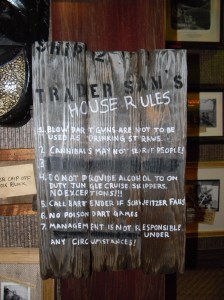 SHIP 2
TRADER SAM'S
HOUSE RULES
1. BLOW DART GUNS ARE NOT TO BE
USED AS DRINKING STRAWS
2. CANNIBALS MAY NOT SERVE PEOPLE!
3.
4. DO NOT PROVIDE ALCOHOL TO ON
DUTY JUNGLE CRUISE SKIPPERS.
NO EXCEPTIONS!!!
5. CALL BARTENDER IF SCHWEITZER FALLS!
6. NO POISON DART GAMES
7. MANAGEMENT IS NOT RESPONSIBLE
UNDER
ANY CIRCUMSTANCES!